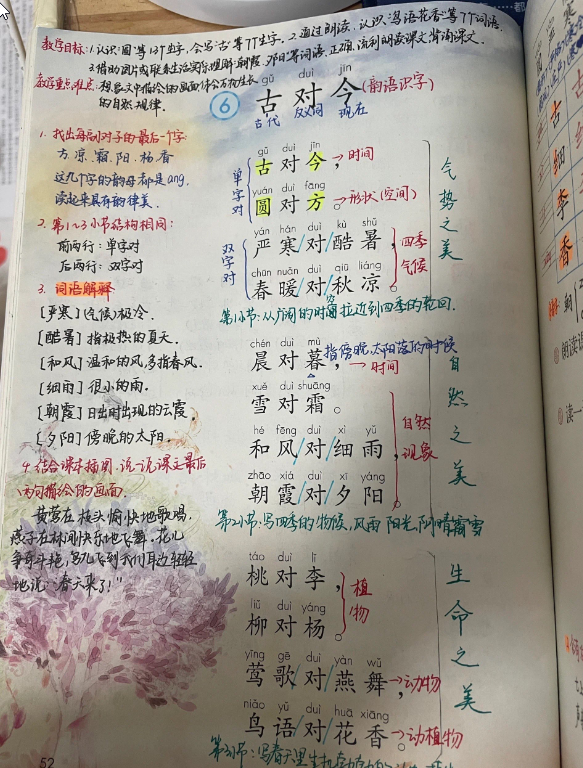 教学目标:1.认识"圆"等13个生字,会写"古"等7个生字。2.通过朗读,认识"鸟语花香"等7个词语.
3.借助图片或联系生活实际理解"朝霞、夕阳"等词语.正确、流利朗读课文背诵课文.
教学重点难点:想象文中描绘的画面体会万物生长
的自然规律.
gǔ duì jīn
6 古对今(韵语识字)
古代 反义词 现在
1. 找出每副对子的最后一个字:
方.凉.霜.阳.杨.香
这几个字的韵母都是ang.
读起来具有韵律美.
2. 第1.2.3小节结构相同:
前两行:单字对
后两行:双字对
3. 词语解释
[严寒]气候极冷.
[酷暑]指极热的夏天.
[和风]温和的风,多指春风.
[细雨]很小的雨.
[朝霞]日出时出现的云霞.
[夕阳]傍晚的太阳.
4. 结合课本插图,说一说课文最后
描绘的画面.
黄莺在枝头愉快地歌唱.
燕子在林间快乐地飞舞.花儿
争奇斗艳,鸟儿飞到我们耳边轻轻
地说:"春天来了!"
52
单字对
gǔ duì jīn
古对今,→时间
yuán duì fāng
圆对方。→形状(空间)
双字对
yán hán duì kù shǔ
严寒/对/酷暑,
chūn nuǎn duì qiū liáng
春暖/对/秋凉。
四季
气候
气势之美
第1小节:从广阔的时空拉近到四季的轮回.
chén duì mù
晨对暮,指傍晚,太阳落的时候
→时间
xuě duì shuāng
雪对霜。
hé fēng duì xì yǔ
和风/对/细雨,
zhāo xiá duì xī yáng
朝霞/对/夕阳。
自然
现象
自然之美
第2小节:写四季的物候,风雨 阳光,阴晴霜雪
táo duì lǐ
桃对李,
liǔ duì yáng
柳对杨。
植物
yīng gē duì yàn wǔ
莺歌/对/燕舞,→动物
niǎo yǔ duì huā xiāng
鸟语/对/花香。→动植物
生命之美
第3小节:写春天里生机
古
细
李
香